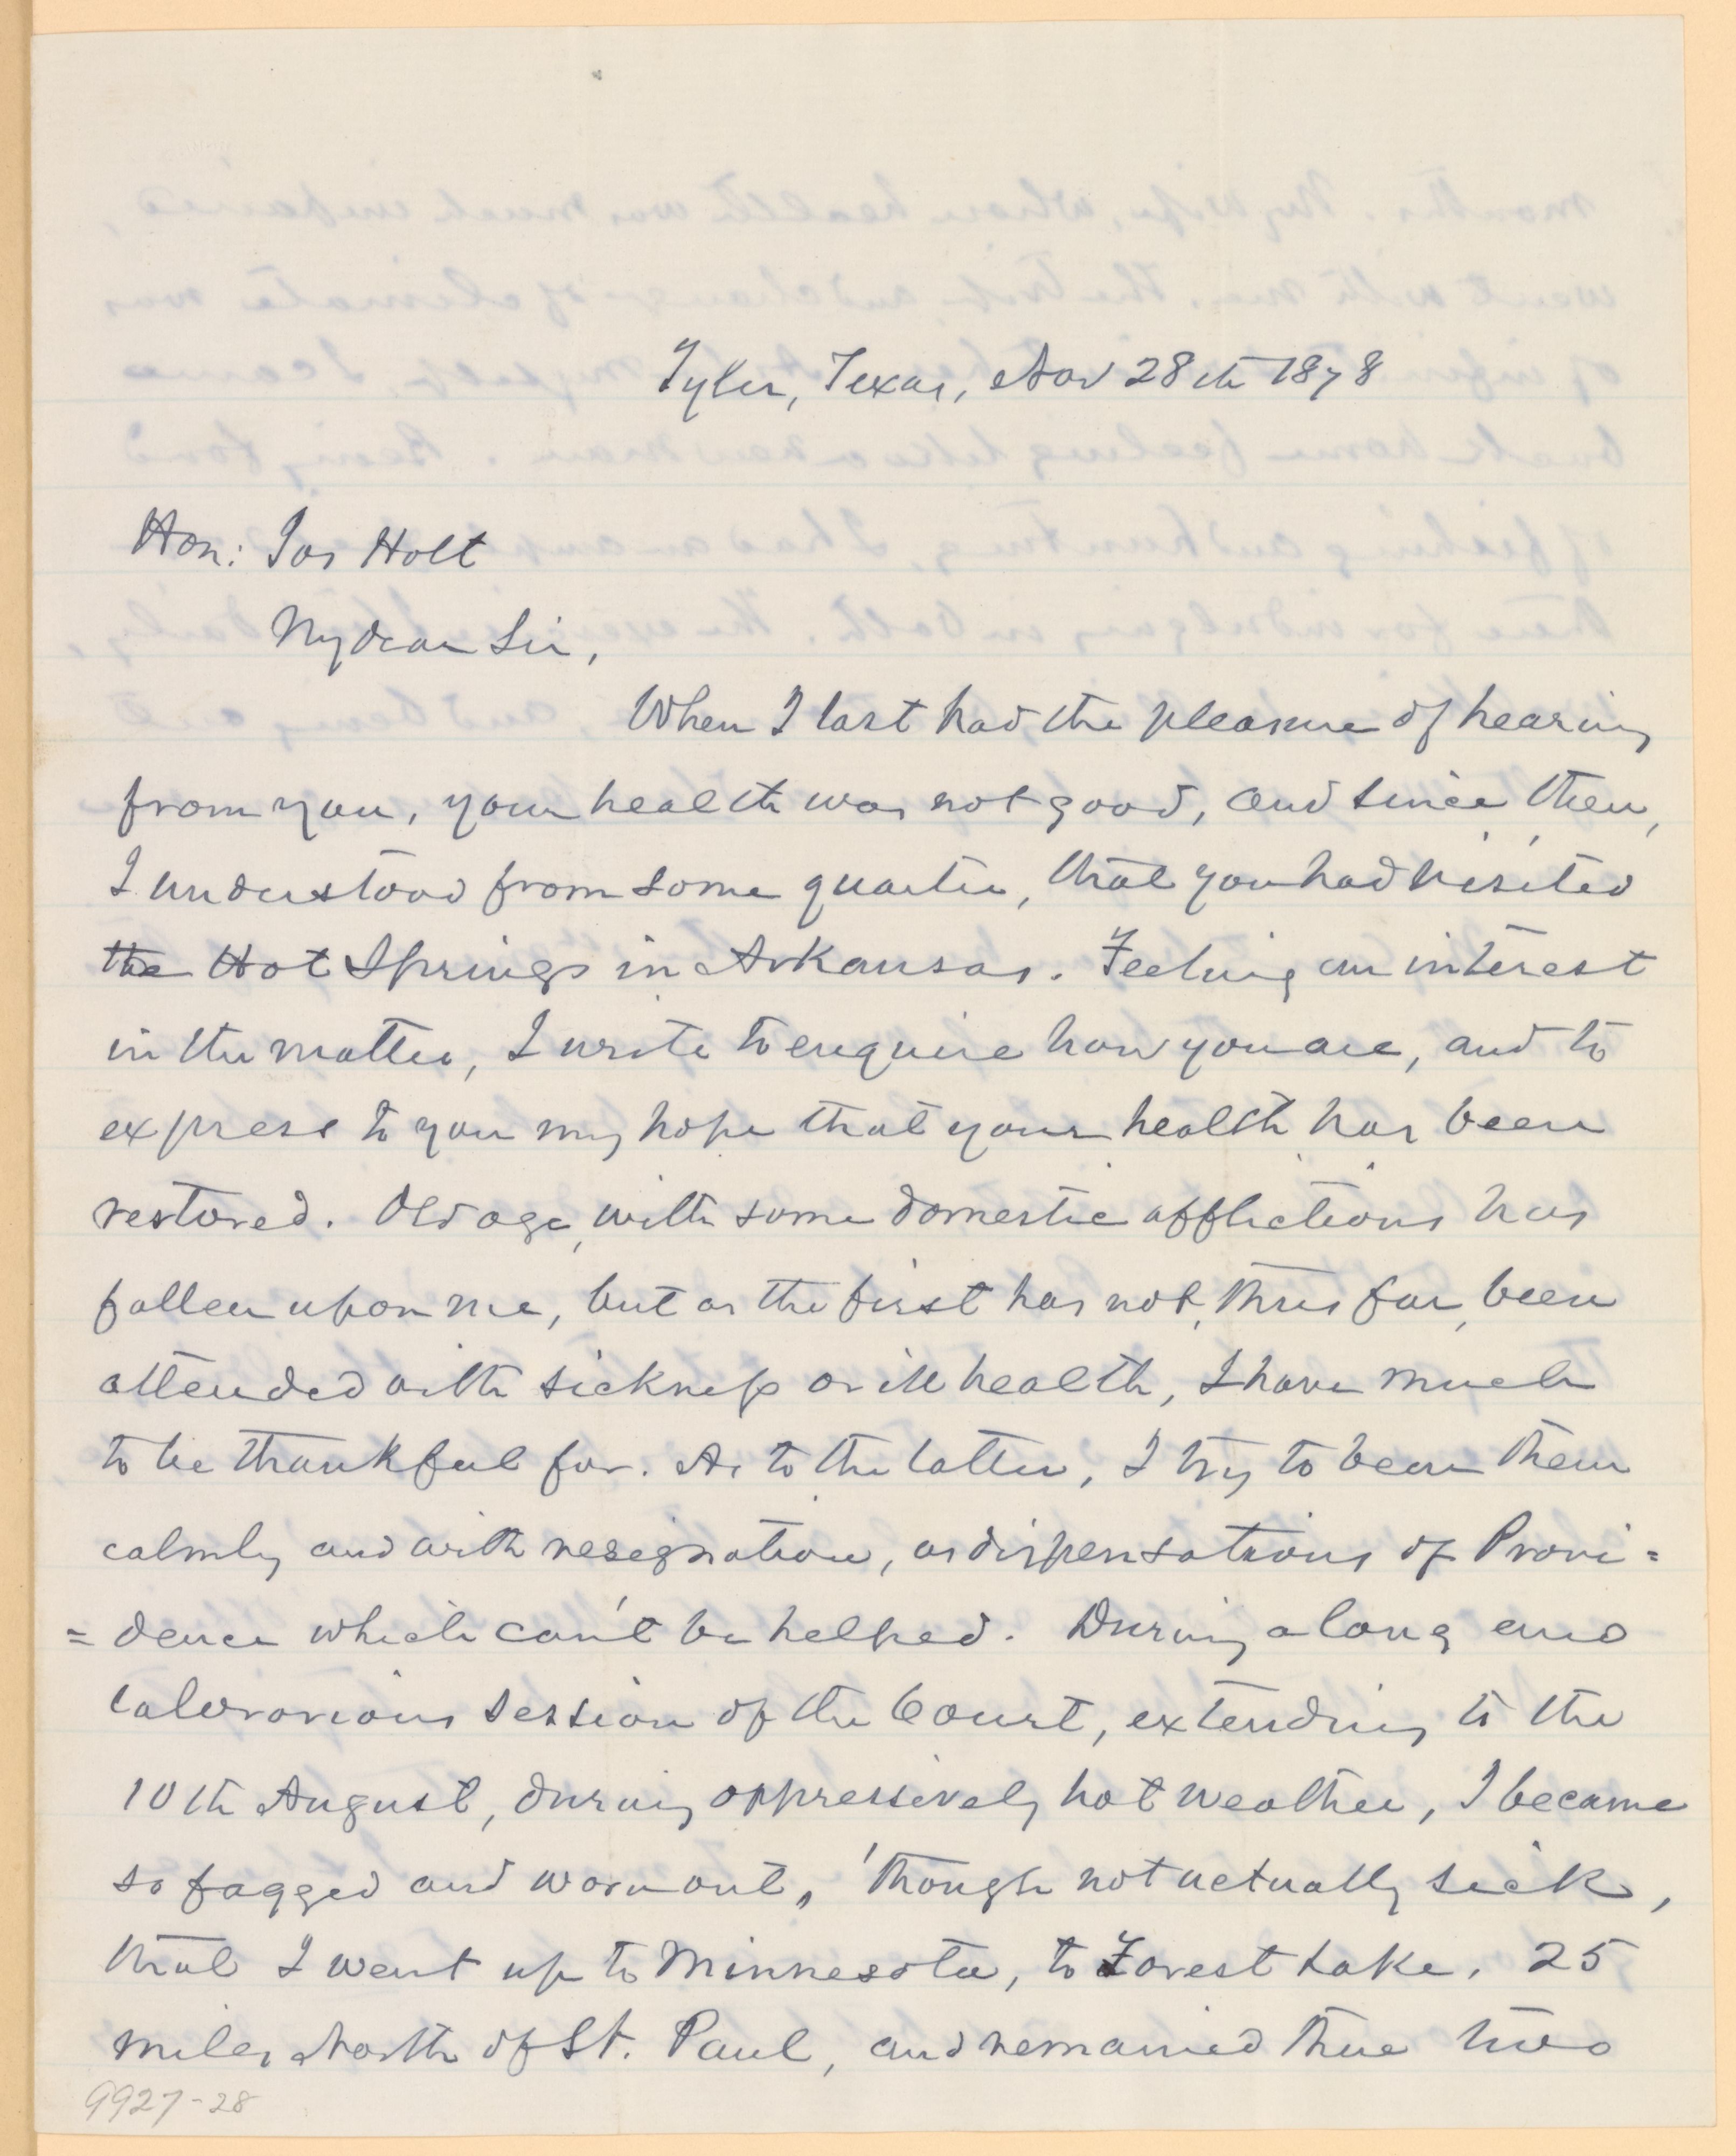 Tyler, Texas, Nov 28th 1878
Hon: Jos Holt
My dear Sir,
When I last had the pleasure of hearing
from you, your health was not good, and since then,
I understood from some quarter, that you had visited
the Hot Springs in Arkansas. Feeling an interest
in the matter, I write to enquire how you are, and to
express to you my hope that your health has been
restored. Old age, with some domestic afflictions has
fallen upon me, but as the first has not, thus far, been
attended with sickness or ill health, I have much
to be thankful for. As to the latter, I try to bear them
calmly and with resignation, as dispensations of Provi=
=dence which can't be helped. During a long and
laborious session of the Court, extending to the
10th August, during oppressively hot weather, I became
so fagged and worn out, 'though not actually sick,
that I went up to Minnesota, to Forest Lake, 25
miles North of St. Paul, and remained there two
9927-28